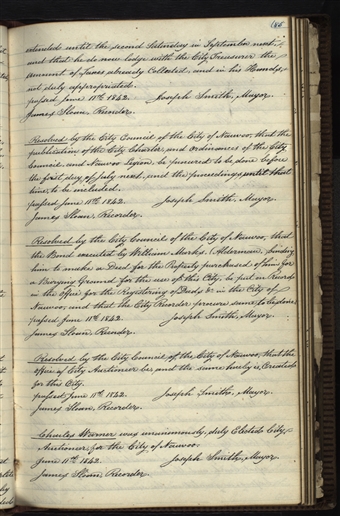 186
extended until the second Saturday in September next;
and that he do now lodge with the City Treasurer the
amount of Taxes already Collected, and in his Hands,
not duly appropriated.
passed June 11th 1842. Joseph Smith, Mayor.
James Sloan, Recorder.
Resolved by the City Council of the City of Nauvoo, that the
publication of the City Charter, and Ordinances of the City
Council, and Nauvoo Legion, be procured to be done before
the first day of July next, and the proceedings until that
time, to be included.
passed June 11th 1842. Joseph Smith, Mayor.
James Sloan, Recorder.
Resolved by the City Council of the City of Nauvoo, that
the Bond executed by William Marks, (Alderman, binding
him to make a Deed for the Property purchased of him for
a Burying Ground for the use of this City, be put on Record
in the office for the Registering of Deeds &c in the City of
Nauvoo, and that the City Recorder procure same to be done
passed June 11th 1842. Joseph Smith, Mayor.
James Sloan Recorder.
Resolved by the City Council of the City of Nauvoo, that the
office of City Auctioneer be, and the same hereby is, Created
for this City.
passed June 11th 1842. Joseph Smith, Mayor.
James Sloan, Recorder.
Charles Warner was unanimously, duly Elected City
Auctioneer, for the City of Nauvoo.
June 11th 1842. Joseph Smith, Mayor
James Sloan Recorder